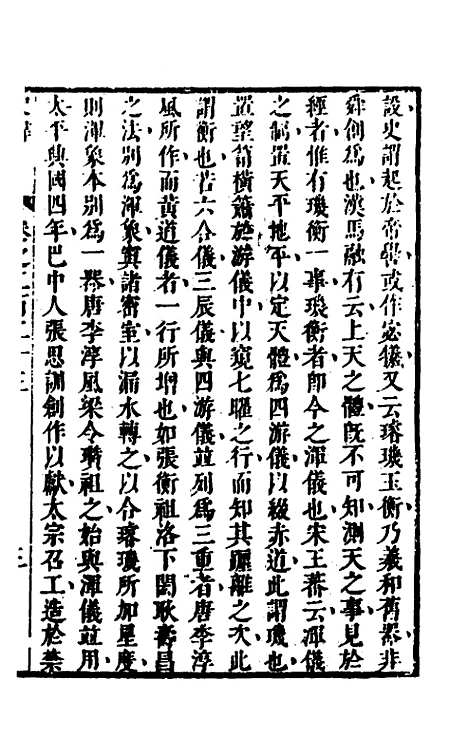 設史謂起於帝嚳或作宓犧又云璿璣玉衡乃羲和舊器非
舜創為也漢馬融有云上天之體旣不可知測天之事見於
經者惟有璣衡一事璣衡者卽今之渾儀也宋王蕃云渾儀
之制置天平地平以定天體為四游儀以綴赤道此謂璣也
置望筩橫簫於游儀中以窺七曜之行而知其躔離之次此
謂衡也若六合儀三辰儀與四游儀並列為三重者唐李淳
風所作而黃道儀者一行所增也如張衡祖洛下閎耿壽昌
之法別為渾象寘諸密室以漏水轉之以合璿璣所加星度
則渾象本別為一器唐李淳風梁令瓚祖之始與渾儀並用
太平興國四年巴中人張思訓創作以獻太宗召工造於禁
三